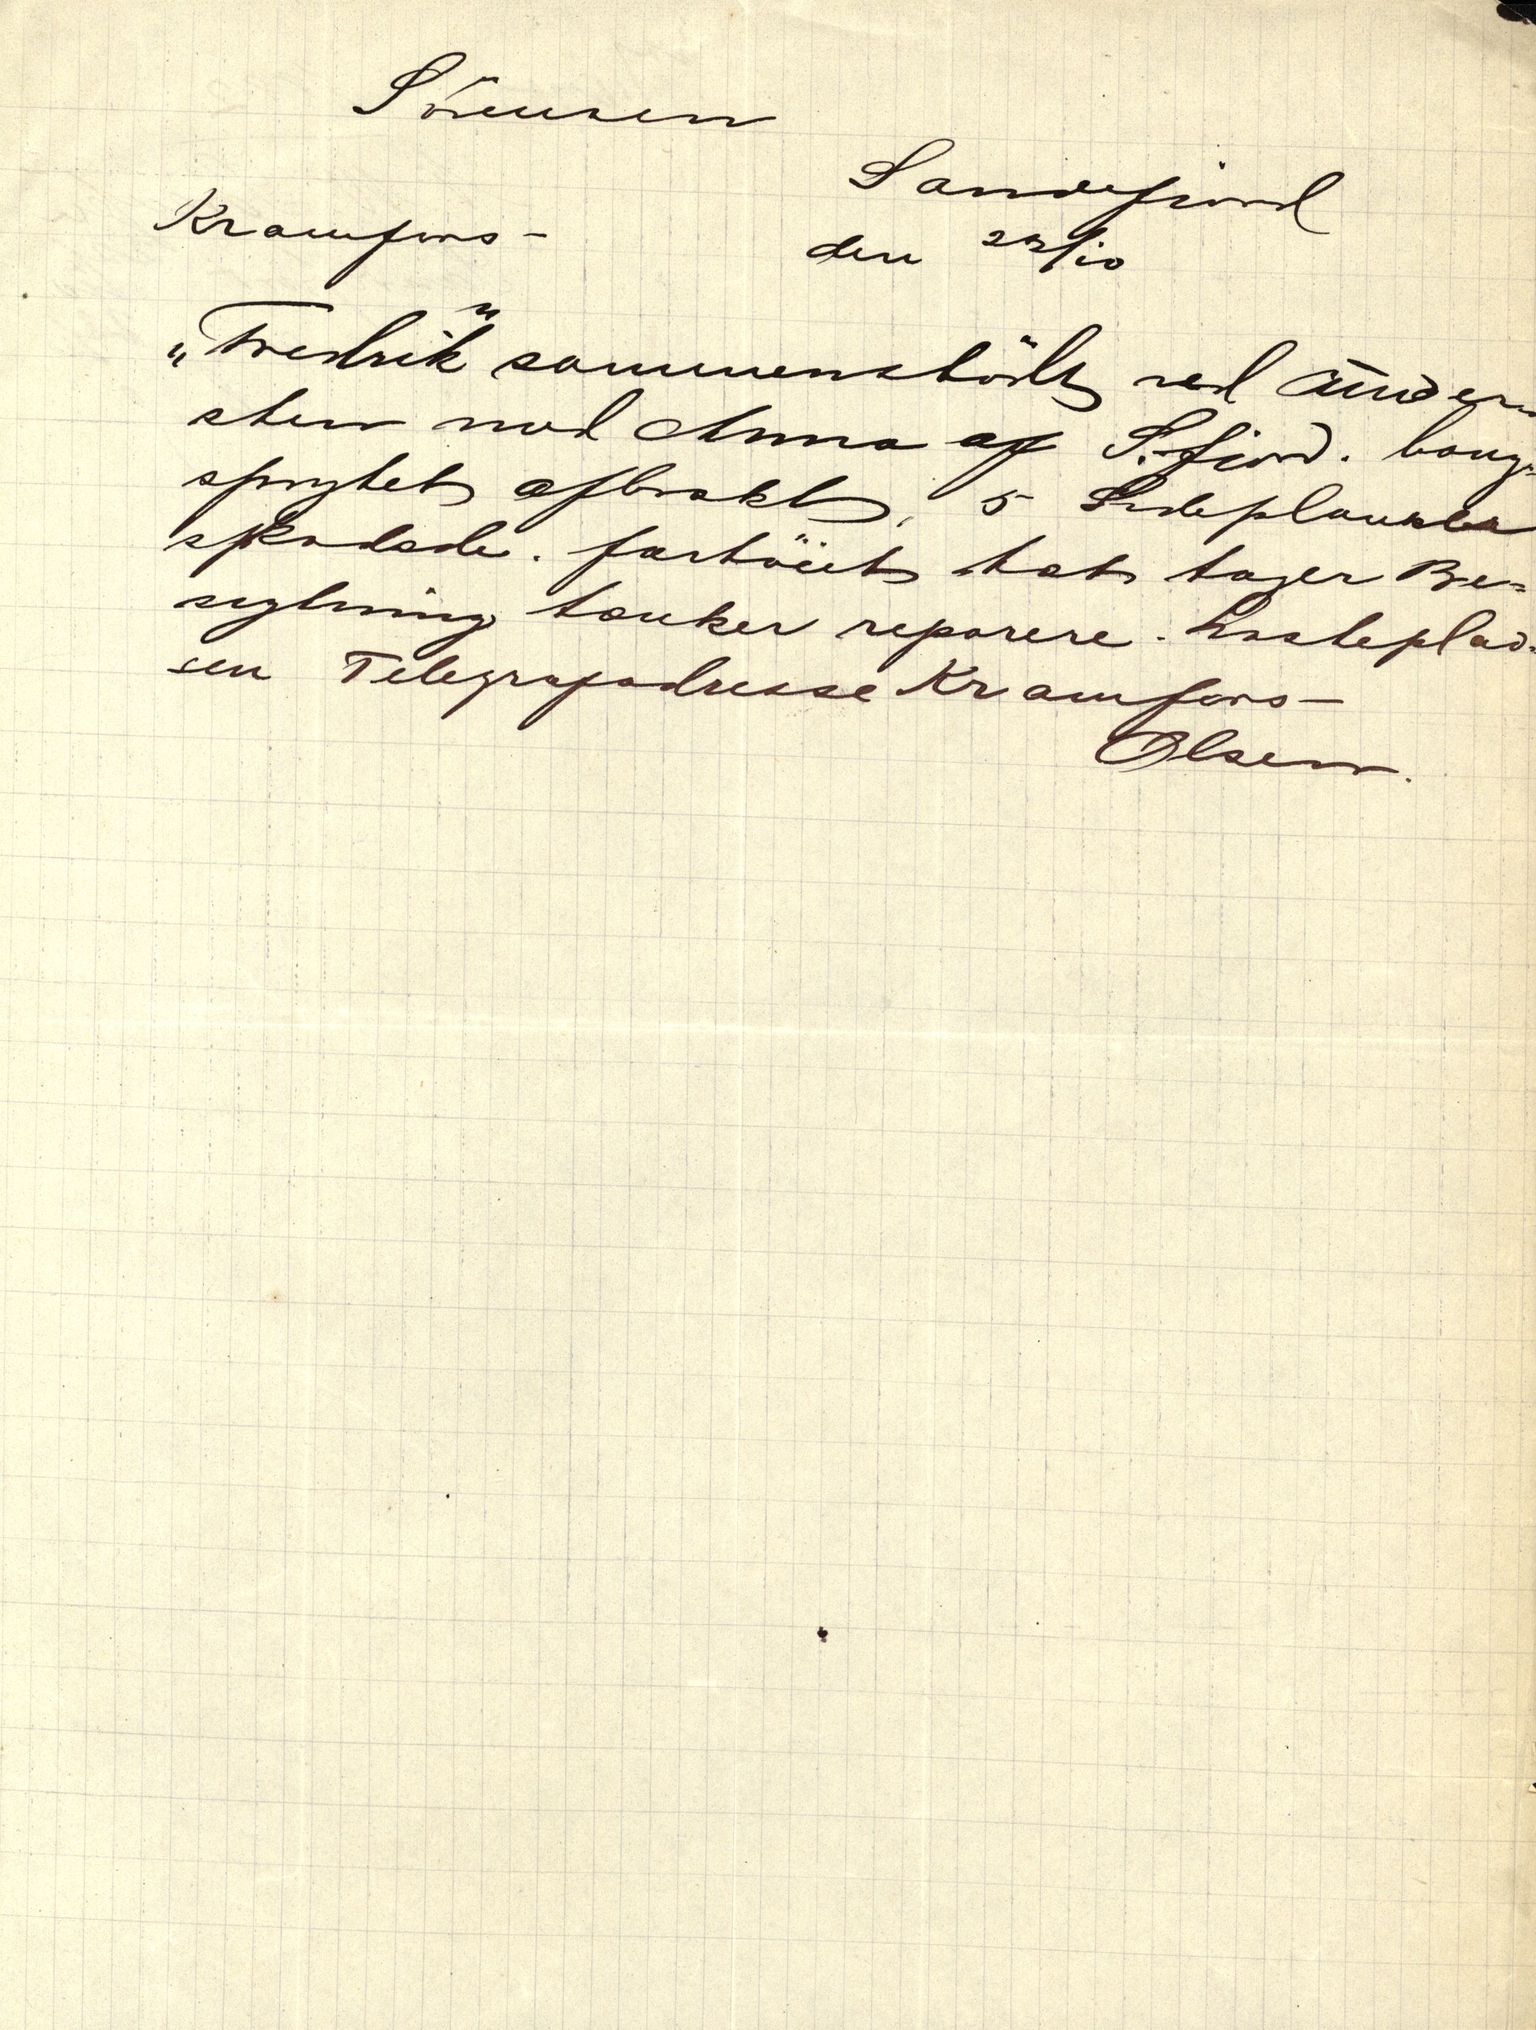 Sörensen
Sandefjord
Kramfors-
den 23/10
"Fredrik" sammenstödt ved Ånder-
sten mod Anna af S.fjord. boug-
sprydet afbrækt, 5 Sideplanker
skadede. fartöiet tæt tager Be-
sigtning tænker reparere. Lasteplad-
sen Telegrafadresse Kramfors-
Olsen.